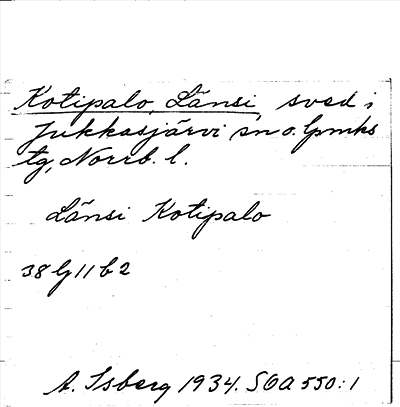 Kotipalo, Länsi, sved i
Jukkasjärvi sn o. lpmks
tg, Norrb. l.
Länsi Kotipalo
38 lj 11 b 2
A. Isberg 1934. SOA 550:1